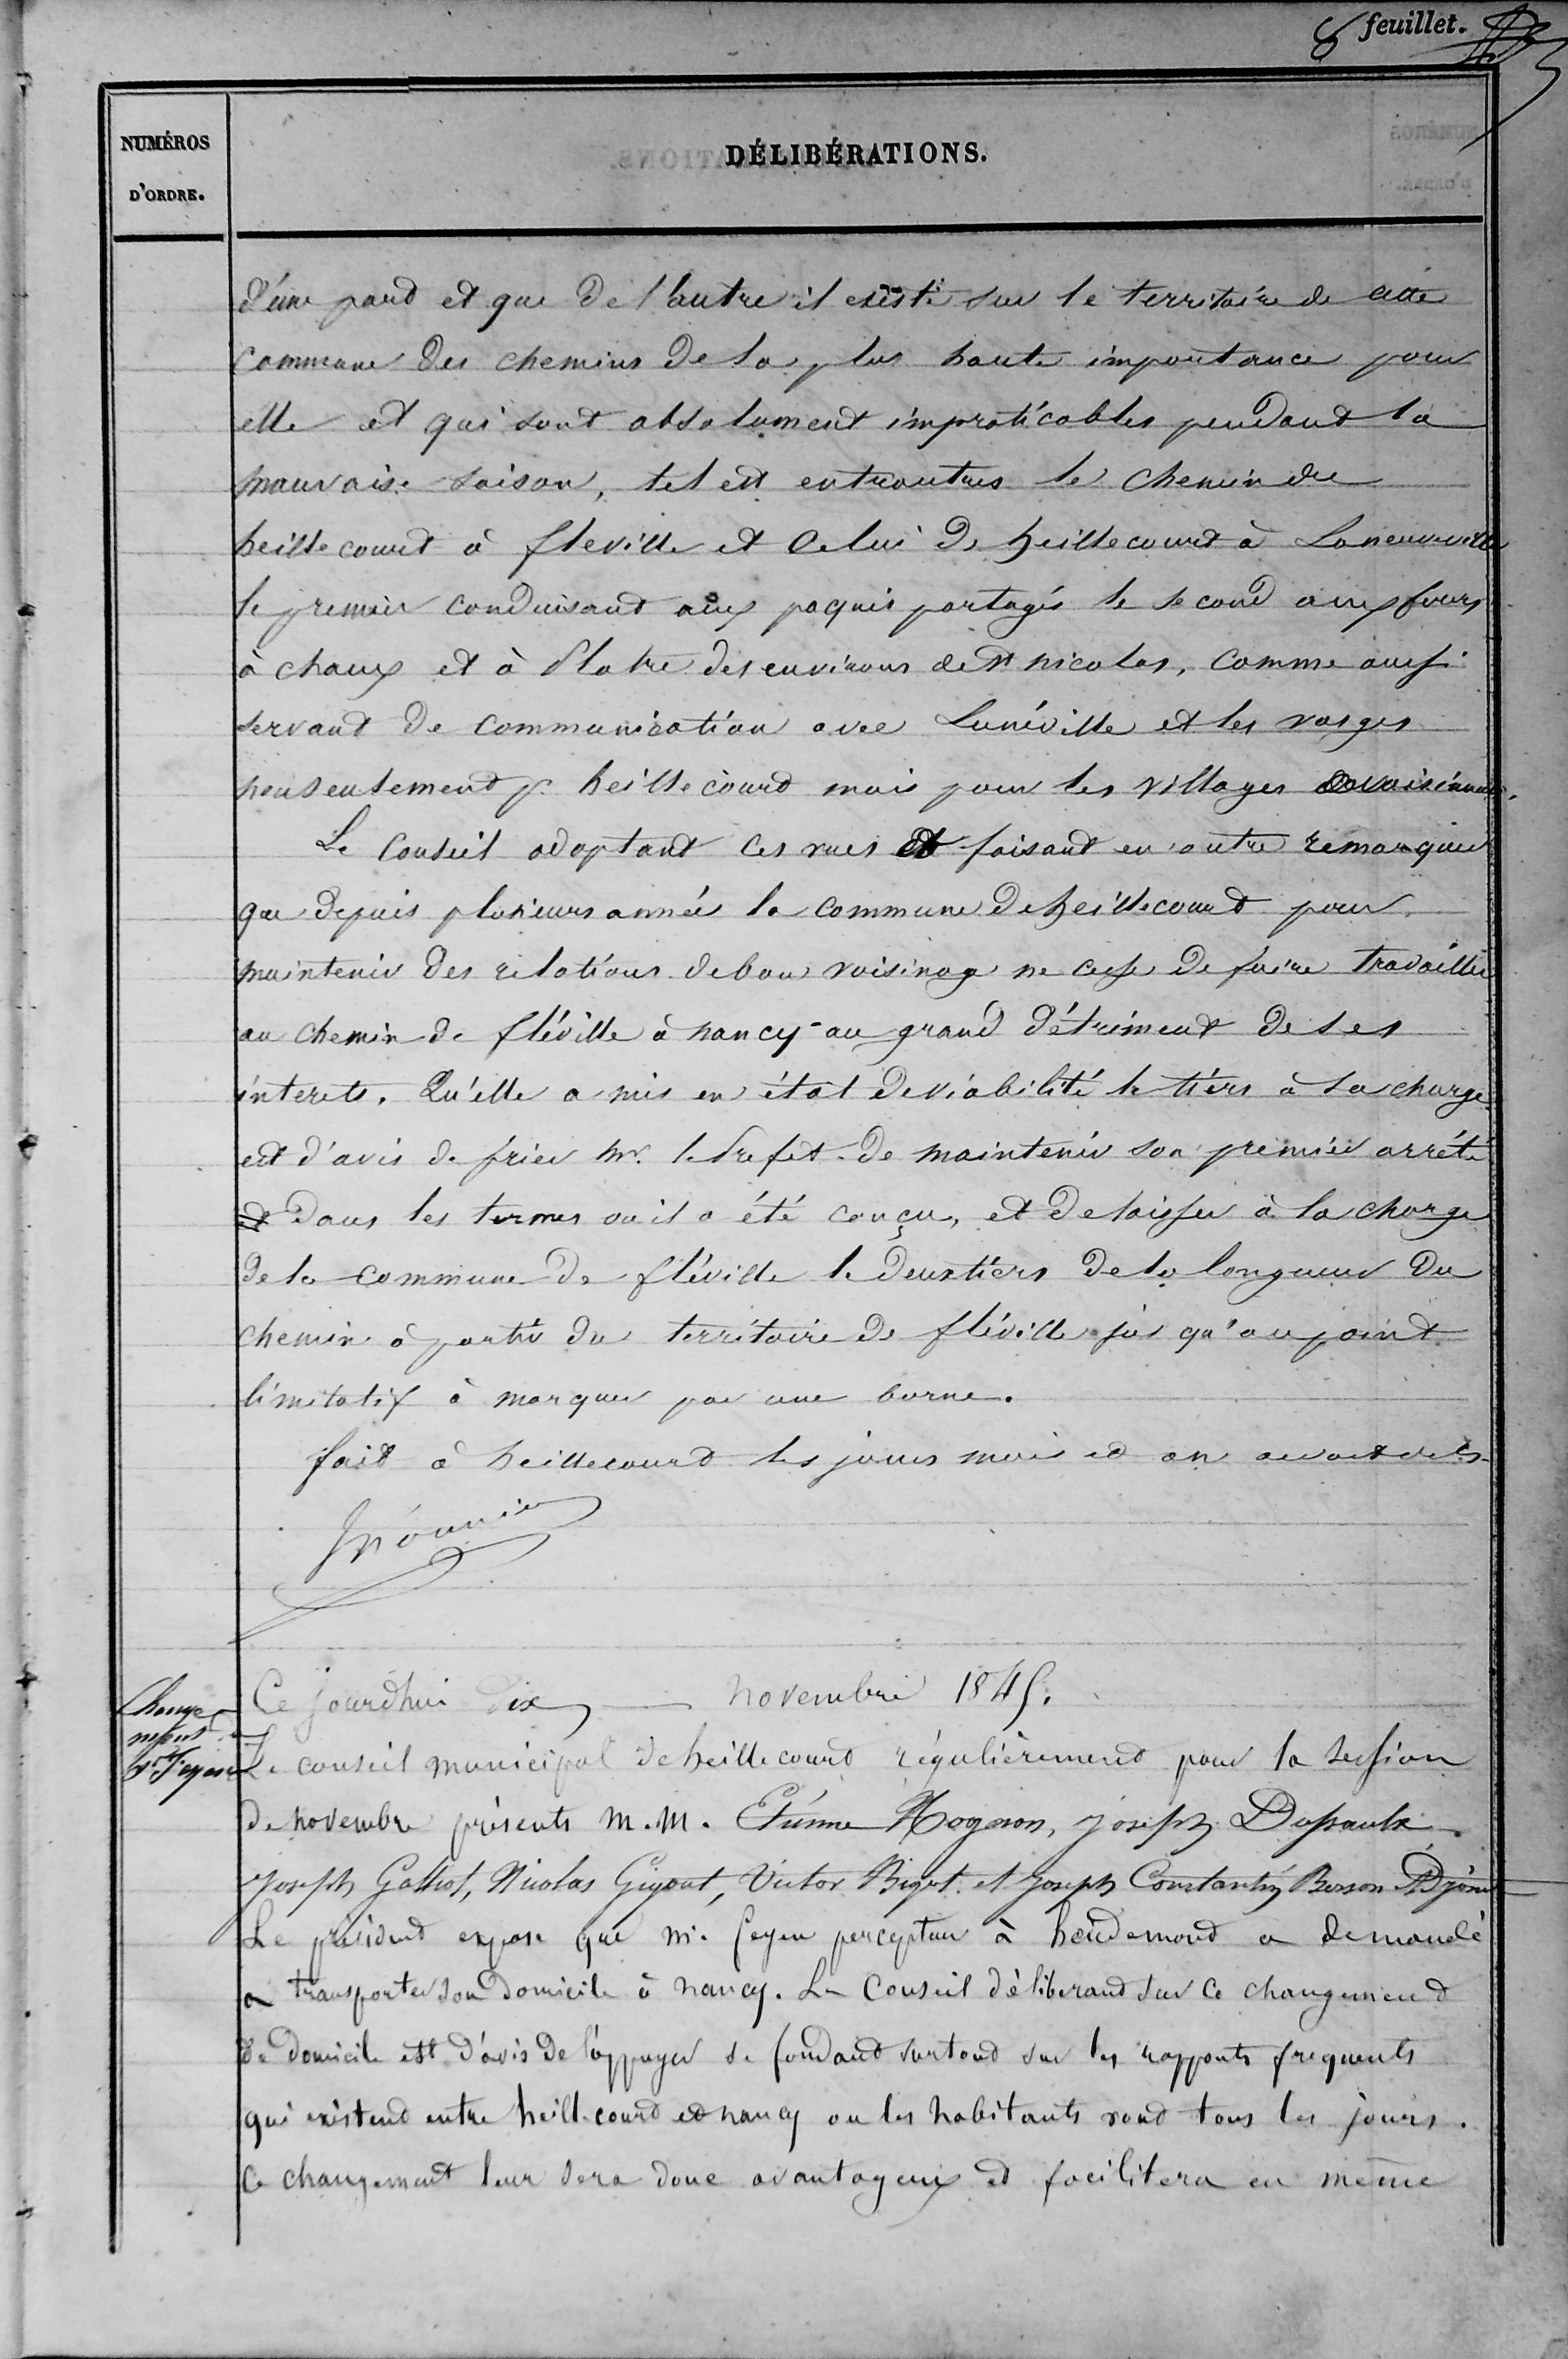 8 feuillet.
NUMÉROS
D'ORDRE.
DÉLIBÉRATIONS.
d'une pard et que de l'autre il existe sur le territoire de cette
commune des chemins de la plus haute importance pour
elle et qui sont absolument impraticables pendant la
mauvaise saison, tel est entreautres le chemin de
heillecourt à fleville et celui de heillecourt à Laneuveville
le premier conduisant aux paquis partagés le second aux fours
à chaux et à Platre des environs de St nicolas, comme aussi
servant de communication avec Lunéville et les vosges
nonseulement pr heillecourt mais pour les villages
Le Conseil adoptant ces vues et faisant en outre remarquer
que depuis plusieurs année la commune de heillecourt pour
maintenir des relations de bon voisinage ne cesse de faire travailler
au chemin de fléville à nancy au grand détriment de ses
interets. Qu'elle a mis en état de viabilité le tiers à sa charge
est d'avis de prier Mr. le Prefet de maintenir son premier arrété
dans les termes ou il a été conçu, et de laisser à la charge
de la commune de fléville le deux tiers de la longueur du
chemin à partir du territoire de fléville jusqu'au point
limitatif à marquer par une borne.
fait à heillecourt les jours mois et an
Ce jourdhui dix novembre 1845.
Change
ment
Mr Feyen
Le conseil municipal de heillecourt régulièrement pour la session
de novembre présents M.M. Etienne Hognon, joseph Dussaulx
Joseph Galliot, Nicolas Gigout, Victor Bigot et Joseph Constantin Besson Adjoint
Le président expose que mr. feyen percepteur à houdemond a demandé
a transporter son domicile à nancy. Le Conseil déliberand sur ce changemend
de domicile est d'avis de l'appuyer se fondand surtoud sur les rapports frequents
qui existend entre heillecourd et nancy ou les habitants vond tous les jours.
Ce changement leur sera donc avantageux et facilitera en même